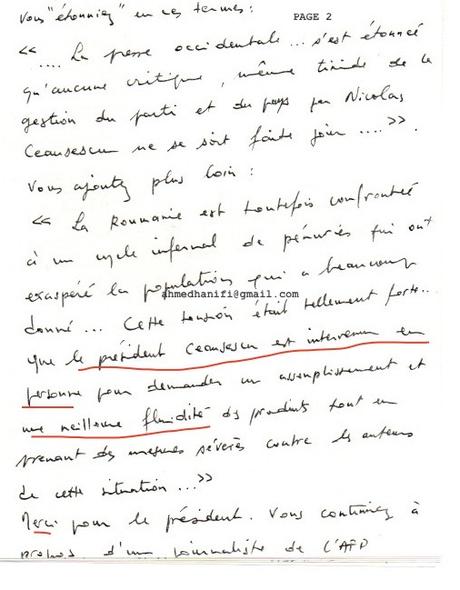 Vous "étonniez" en ces termes :
PAGE 2
« .... La presse occidentale ... s'est étonnée
qu'aucune critique, même timide de la
gestion du parti et du pays par Nicolas
Ceausescu ne se soit faite jour .... ».
Vous ajoutez plus loin :
« La Roumanie est toutefois confrontée
à un cycle infernal de pénuries qui ont
exaspéré la population qui a beaucoup
ahmedhanifi@gmail.com
donné ... Cette tension était tellement forte ..
que le président Ceausescu est intervenu en
personne pour demander un assouplissement et
une meilleure fluidité des produits tout en
prenant des mesures sévères contre les auteurs
de cette situation ... »
Merci pour le président. Vous continuez à
propos d'un journaliste de l'AFP